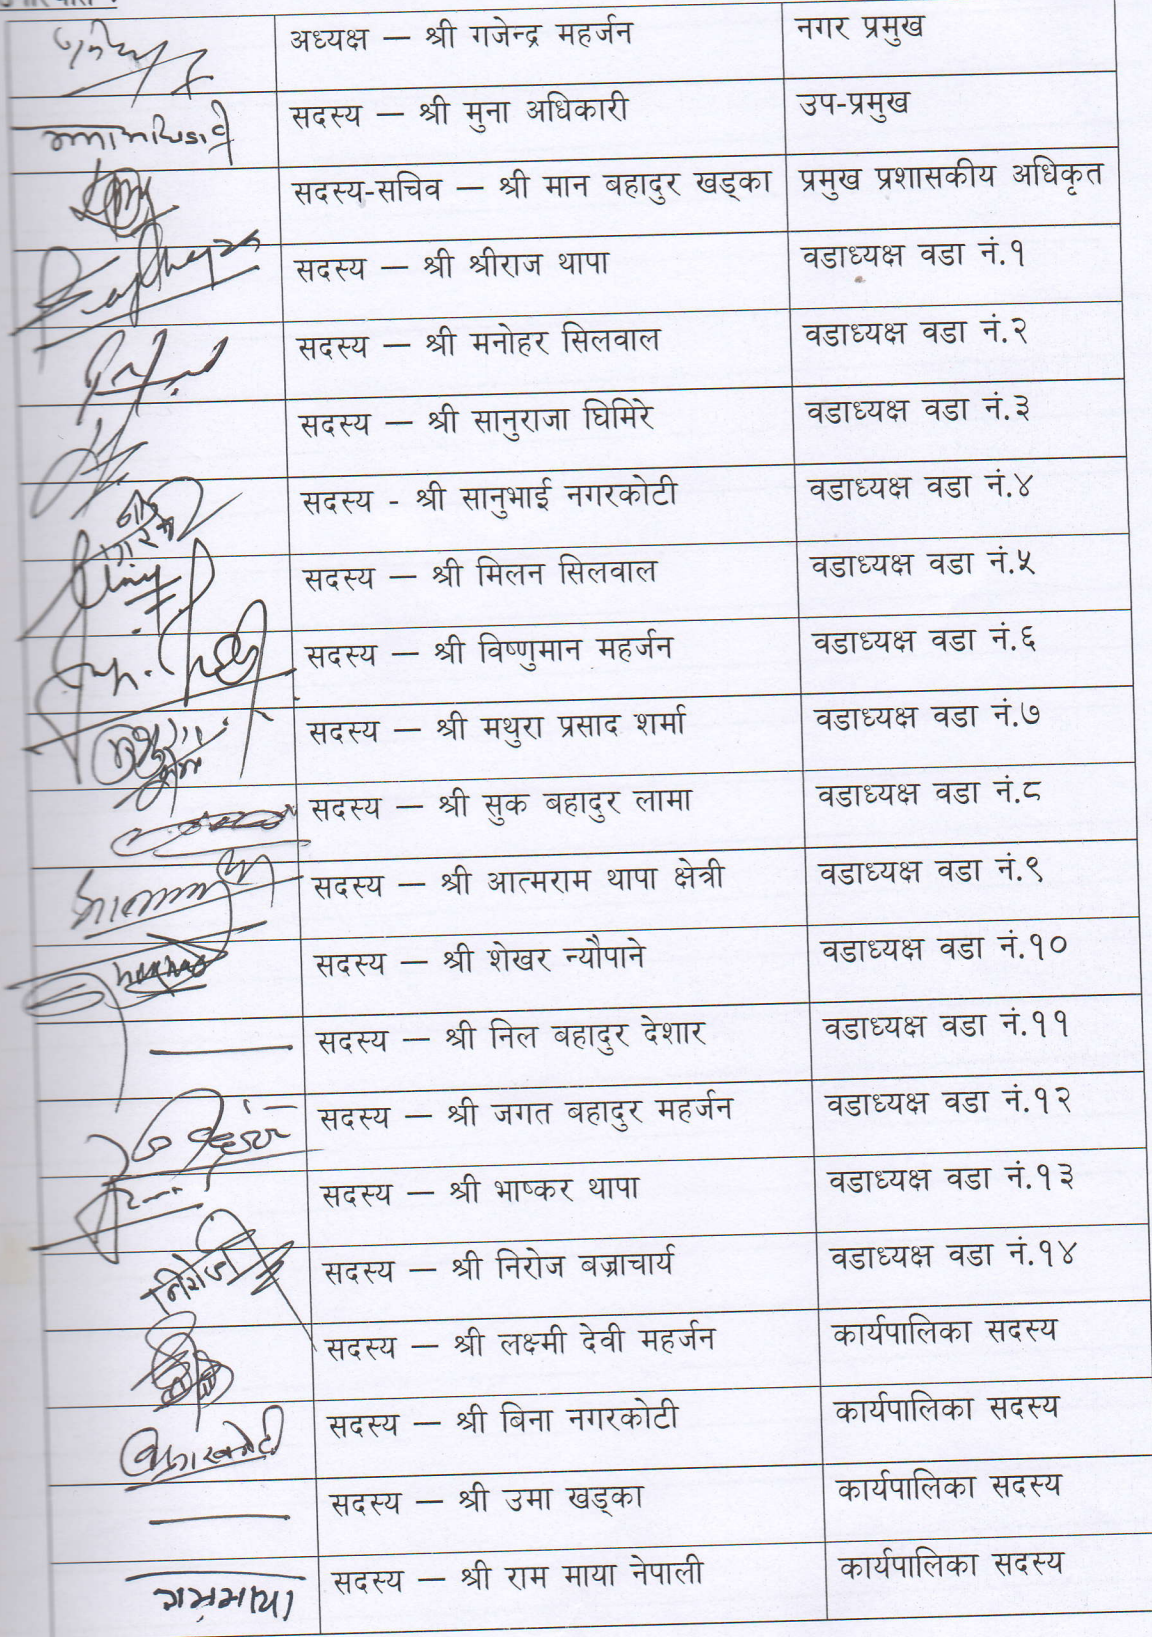 अध्यक्ष — श्री गजेन्द्र महर्जन नगर प्रमुख
सदस्य — श्री मुना अधिकारी उप-प्रमुख
सदस्य-सचिव — श्री मान बहादुर खड्का प्रमुख प्रशासकीय अधिकृत
सदस्य — श्री श्रीराज थापा वडाध्यक्ष वडा नं.१
सदस्य — श्री मनोहर सिलवाल वडाध्यक्ष वडा नं.२
सदस्य — श्री सानुराजा घिमिरे वडाध्यक्ष वडा नं.३
सदस्य - श्री सानुभाई नगरकोटी वडाध्यक्ष वडा नं.४
सदस्य — श्री मिलन सिलवाल वडाध्यक्ष वडा नं.५
सदस्य — श्री विष्णुमान महर्जन वडाध्यक्ष वडा नं.६
सदस्य — श्री मथुरा प्रसाद शर्मा वडाध्यक्ष वडा नं.७
सदस्य — श्री सुक बहादुर लामा वडाध्यक्ष वडा नं.८
सदस्य — श्री आत्मराम थापा क्षेत्री वडाध्यक्ष वडा नं.९
सदस्य — श्री शेखर न्यौपाने वडाध्यक्ष वडा नं.१०
सदस्य — श्री निल बहादुर देशार वडाध्यक्ष वडा नं.११
सदस्य — श्री जगत बहादुर महर्जन वडाध्यक्ष वडा नं.१२
सदस्य — श्री भाष्कर थापा वडाध्यक्ष वडा नं.१३
सदस्य — श्री निरोज बज्राचार्य वडाध्यक्ष वडा नं.१४
सदस्य — श्री लक्ष्मी देवी महर्जन कार्यपालिका सदस्य
सदस्य — श्री बिना नगरकोटी कार्यपालिका सदस्य
सदस्य — श्री उमा खड्का कार्यपालिका सदस्य
राममाया सदस्य — श्री राम माया नेपाली कार्यपालिका सदस्य